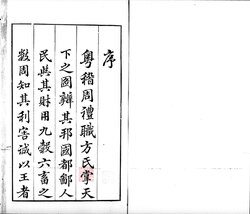 序
粤稽周禮職方氏掌天
下之圖辨其邦國都鄙人
民與其財用九穀六畜之
數周知其利害誠以王者